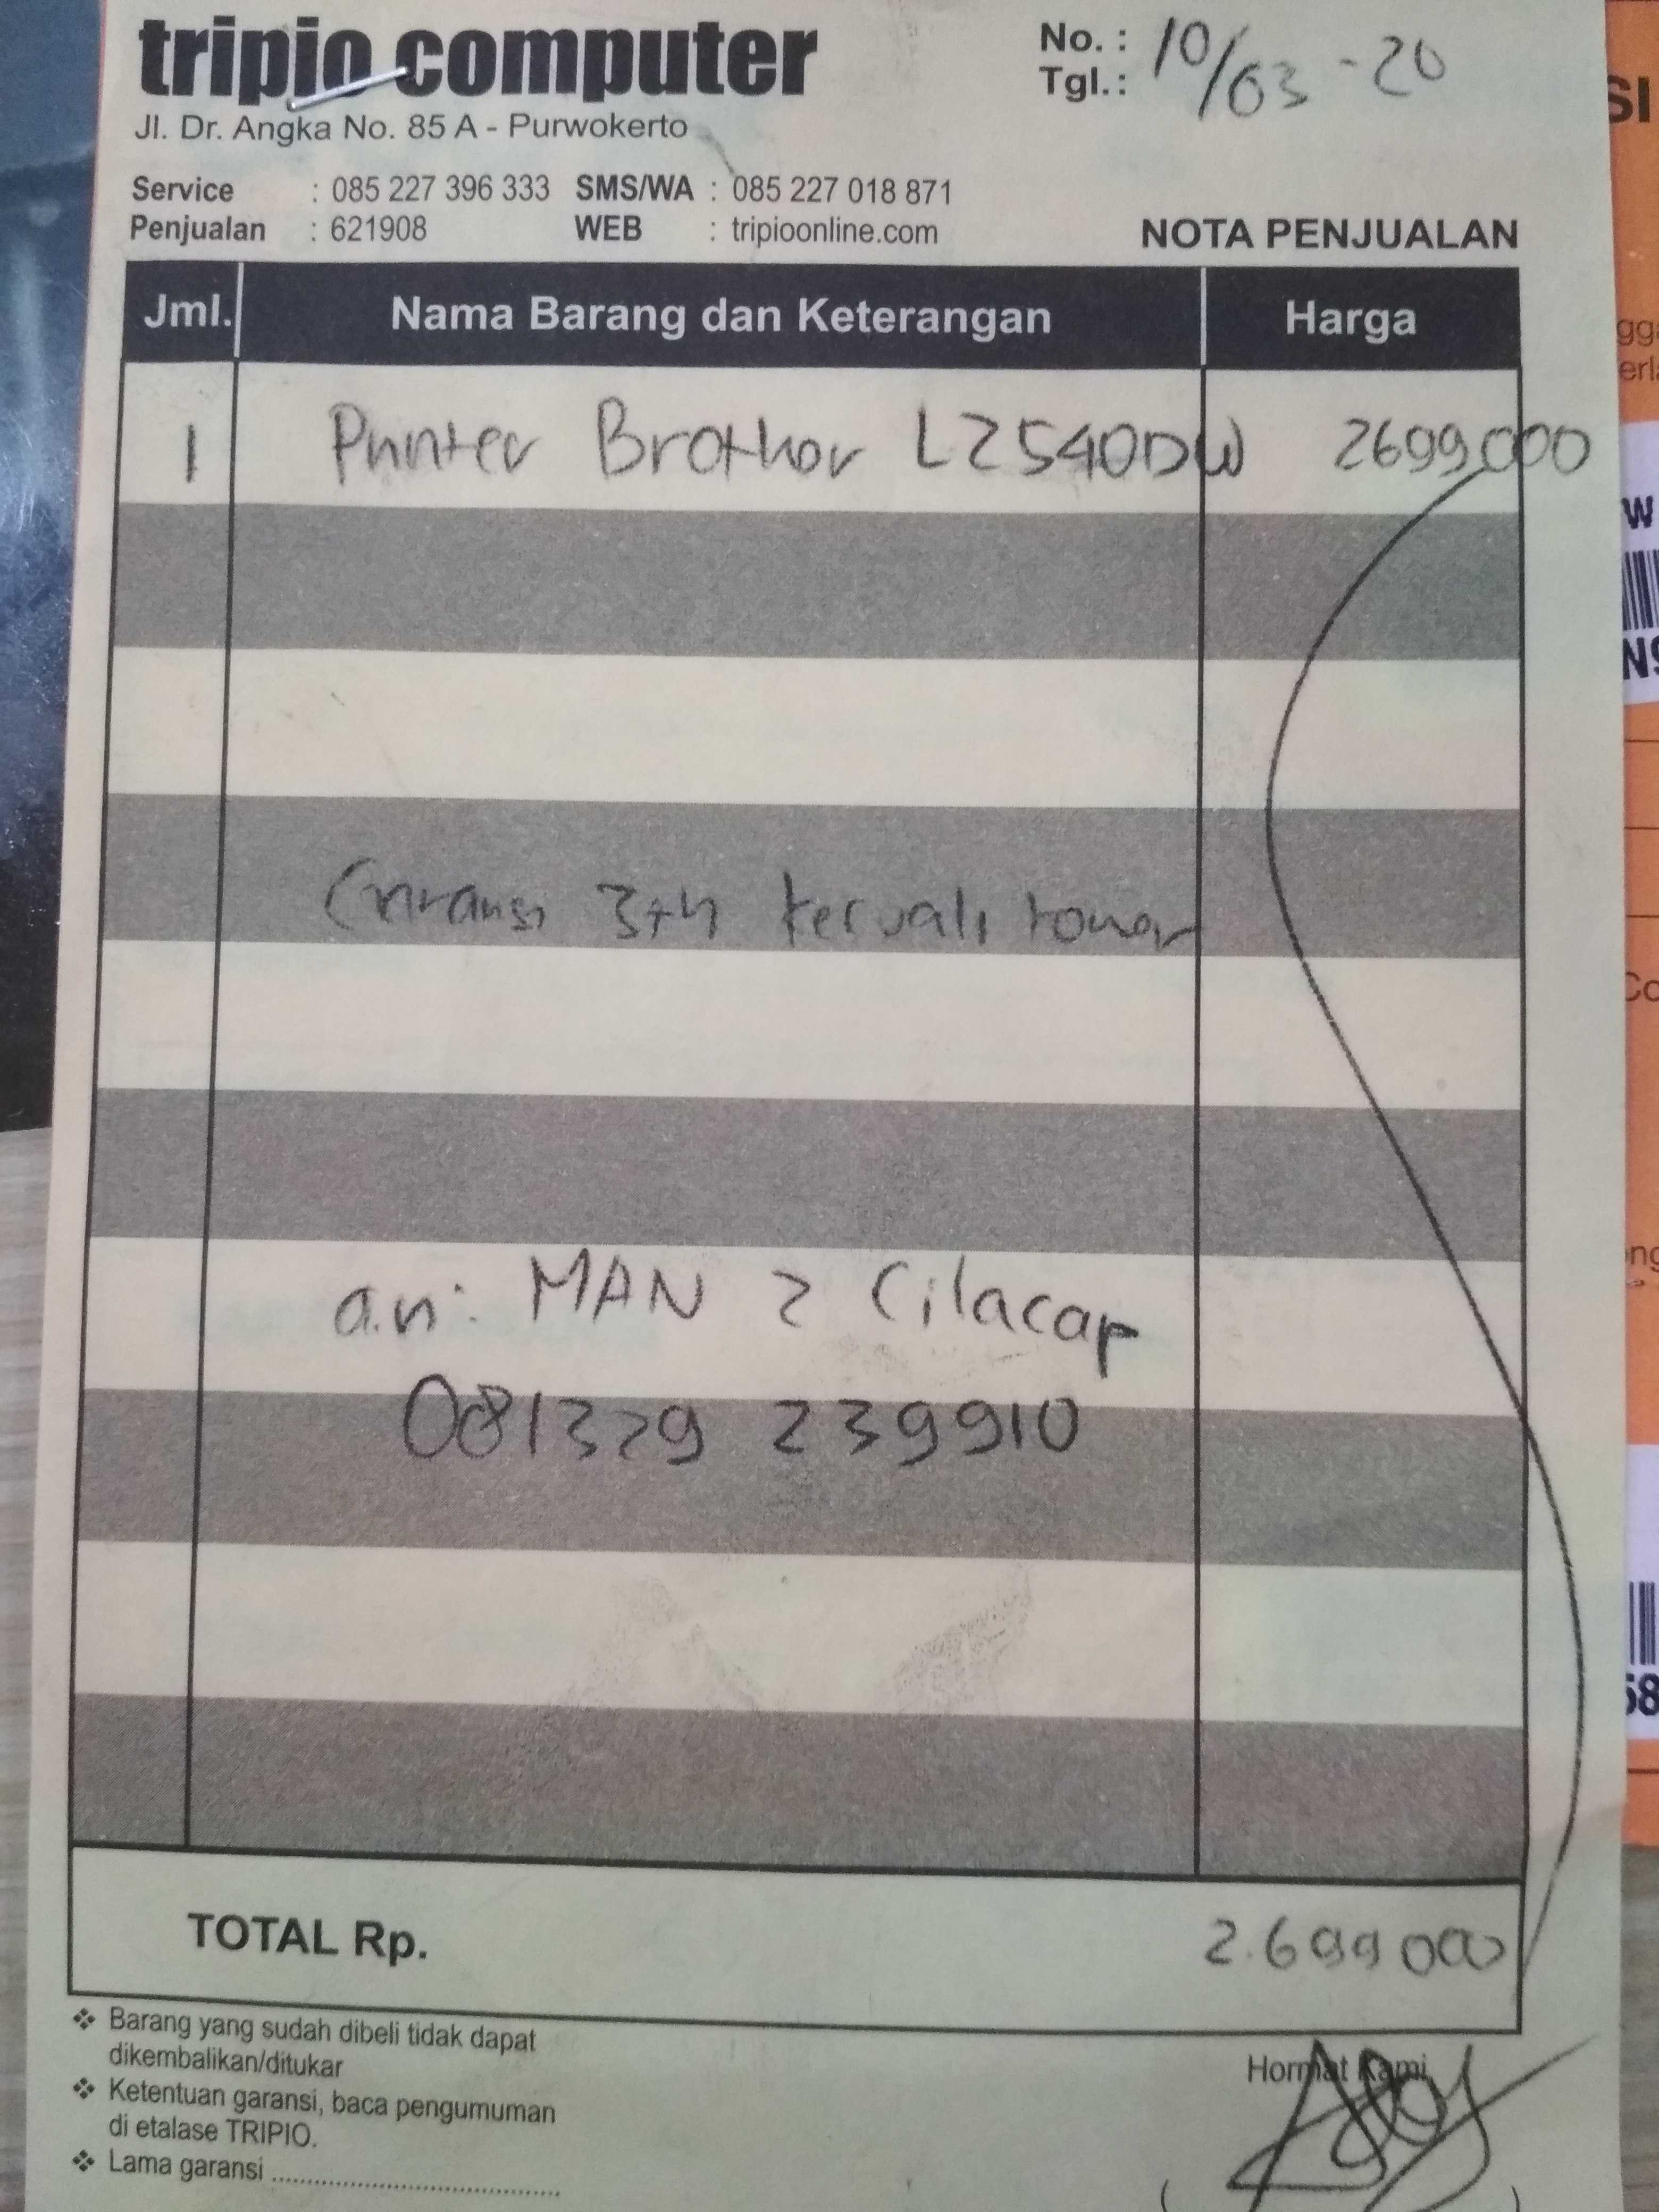 tripio computer
Jl. Dr. Angka No. 85 A - Purwokerto
No. :
Tgl. : 10/03 - 20
Service : 085 227 396 333 SMS/WA : 085 227 018 871
Penjualan : 621908 WEB : tripioonline.com
NOTA PENJUALAN
Jml. Nama Barang dan Keterangan Harga
1 Printer Brother L2540DW 2699000
Garansi 3th kecuali toner
a.n: MAN 2 Cilacap
081329 239910
TOTAL Rp. 2.699 000
❖ Barang yang sudah dibeli tidak dapat
dikembalikan/ditukar
❖ Ketentuan garansi, baca pengumuman
di etalase TRIPIO.
❖ Lama garansi ..............................
Hormat Kami,
( )
SI
W
N9
Co
58